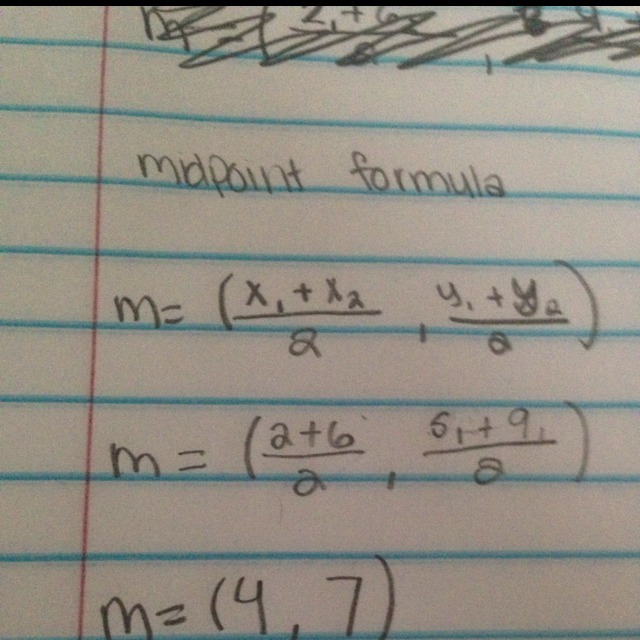 midpoint formula
m= (x₁ + x₂ / 2 , y₁ + y₂ / 2)
m = (2+6 / 2 , 5₁ + 9₁ / 2)
m= (4, 7)